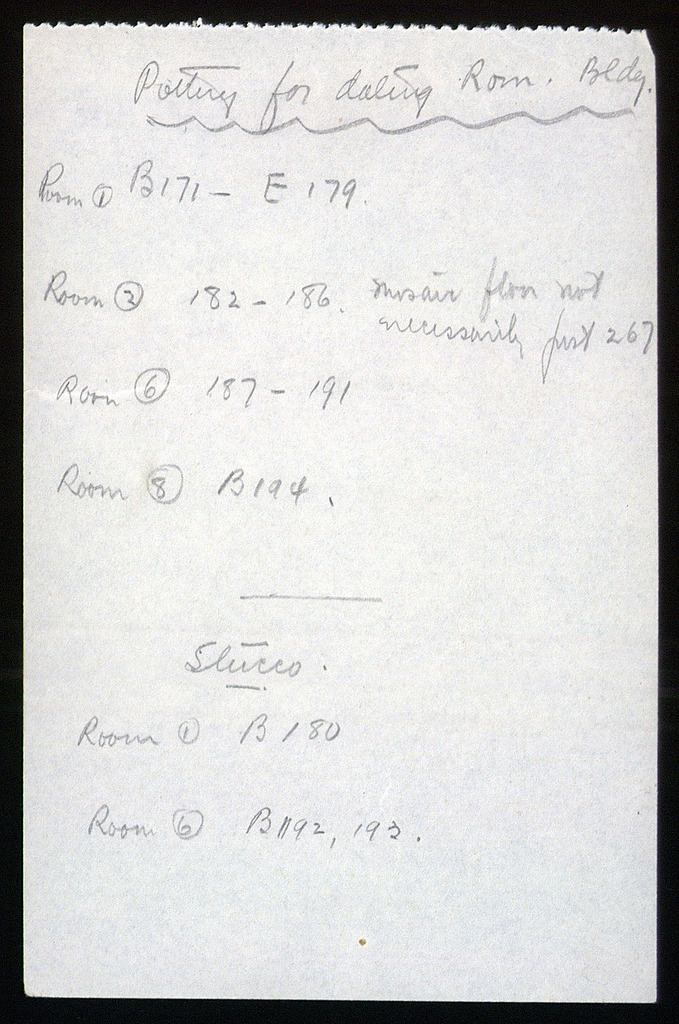 Pottery for dating Rom. Bldg.
Room ① B171 – E 179.
Room ② 182 – 186. mosaic floor not
necessarily just 267
Room ⑥ 187 – 191
Room ⑧ B194.
Stucco.
Room ① B 180
Room ⑥ B192, 193.